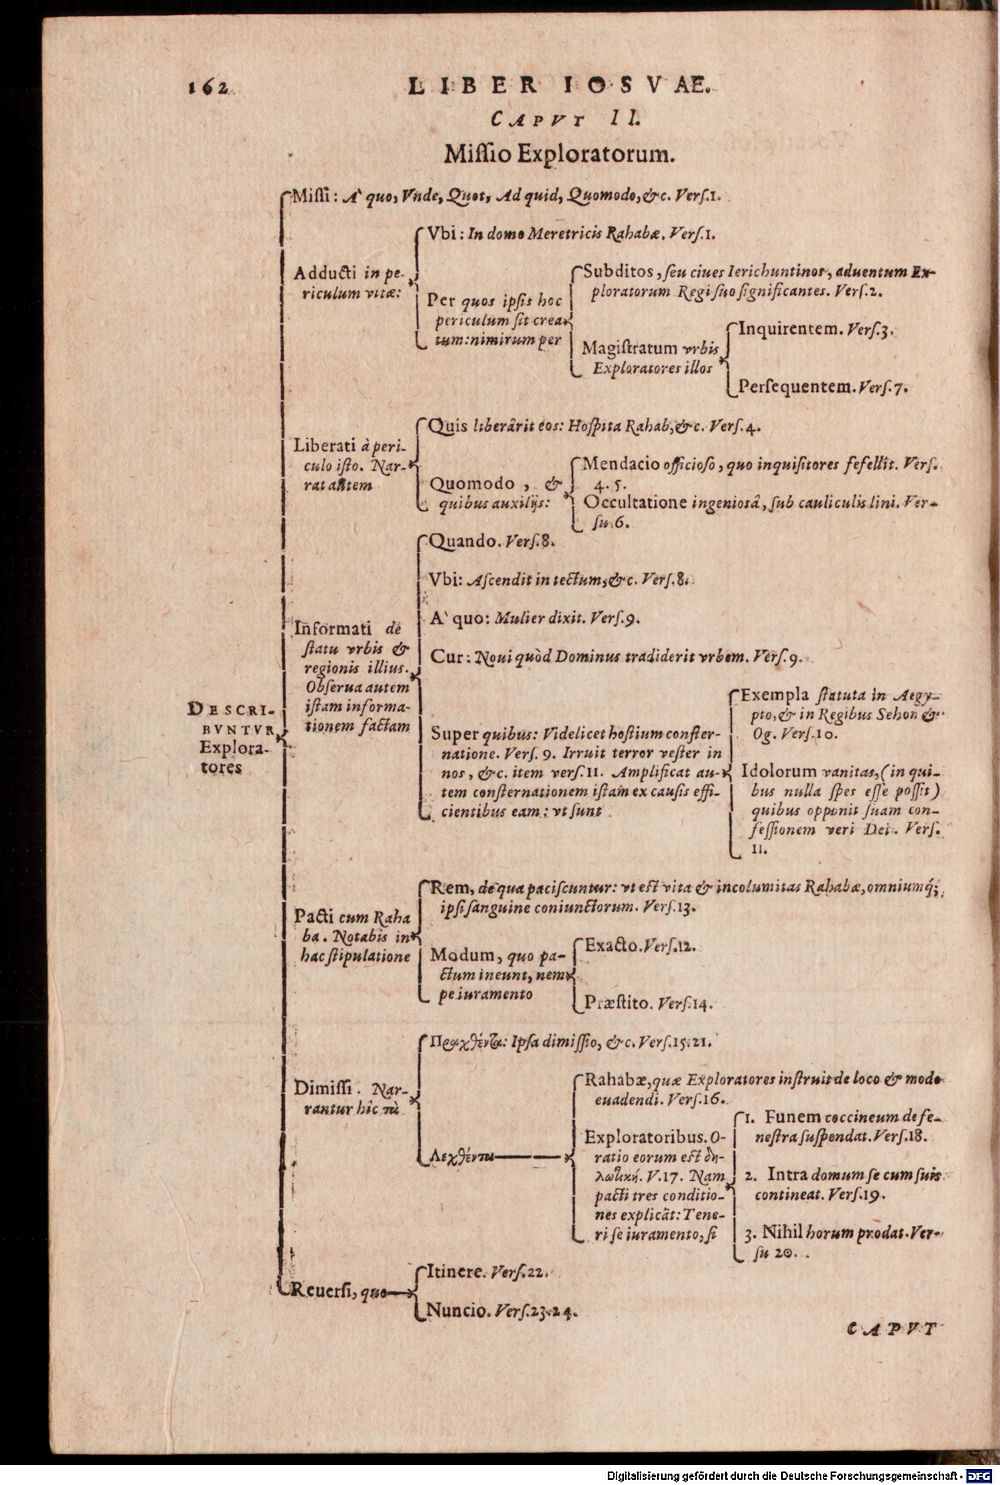 162
LIBER IOSVAE.
CAPVT II.
Missio Exploratorum.
Missi: A quo, Vnde, Quot, Ad quid, Quomodo, &c. Vers.1.
Adducti in pe-
riculum vitæ:
Vbi: In domo Meretricis Rahabæ. Vers.1.
Per quos ipsis hoc
periculum sit crea-
tum: nimirum per
Subditos, seu ciues Ierichuntinos, aduentum Ex-
ploratorum Regi suo significantes. Vers.2.
Magistratum vrbis
Exploratores illos
Inquirentem. Vers.3.
Persequentem. Vers.7.
Liberati à peri-
culo isto. Nar-
rat autem
Quis liberârit eos: Hospita Rahab, &c. Vers.4.
Quomodo, &
quibus auxilijs:
Mendacio officioso, quo inquisitores fefellit. Vers.
4. 5.
Occultatione ingeniosâ, sub cauliculis lini. Ver-
su.6.
Informati de
statu vrbis &
regionis illius.
Obserua autem
istam informa-
tionem factam
Quando. Vers.8.
Vbi: Ascendit in tectum, &c. Vers.8.
A` quo: Mulier dixit. Vers.9.
Cur: Noui quòd Dominus tradiderit vrbem. Vers.9.
Super quibus: Videlicet hostium conster-
natione. Vers. 9. Irruit terror vester in
nos, &c. item vers.11. Amplificat au-
tem consternationem istam ex causis effi-
cientibus eam: vt sunt
Exempla statuta in Aegy-
pto, & in Regibus Sehon &
Og. Vers.10.
Idolorum vanitas, (in qui-
bus nulla spes esse possit)
quibus opponit suam con-
fessionem veri Dei. Vers.
11.
DESCRI-
BVNTVR
Explora-
tores
Pacti cum Raha
ba. Notabis in
hac stipulatione
Rem, de qua paciscuntur: vt est vita & incolumitas Rahabæ, omniumq́;
ipsi sanguine coniunctorum. Vers.13.
Modum, quo pa-
ctum ineunt, nem-
pe iuramento
Exacto. Vers.12.
Præstito. Vers.14.
Dimissi. Nar-
rantur hîc τὰ
Πραχθέντα: Ipsa dimissio, &c. Vers.15.21.
Λεχθέντα
Rahabæ, quæ Exploratores instruit de loco & modo
euadendi. Vers.16.
Exploratoribus. O-
ratio eorum est δη-
λωτική. V.17. Nam
pacti tres conditio-
nes explicāt: Tene-
ri se iuramento, si
1. Funem coccineum de fe-
nestra suspendat. Vers.18.
2. Intra domum se cum suis
contineat. Vers.19.
3. Nihil horum prodat. Ver-
su 20.
Reuersi, quo
Itinere. Vers.22.
Nuncio. Vers.23.24.
CAPVT
Digitalisierung gefördert durch die Deutsche Forschungsgemeinschaft - DFG